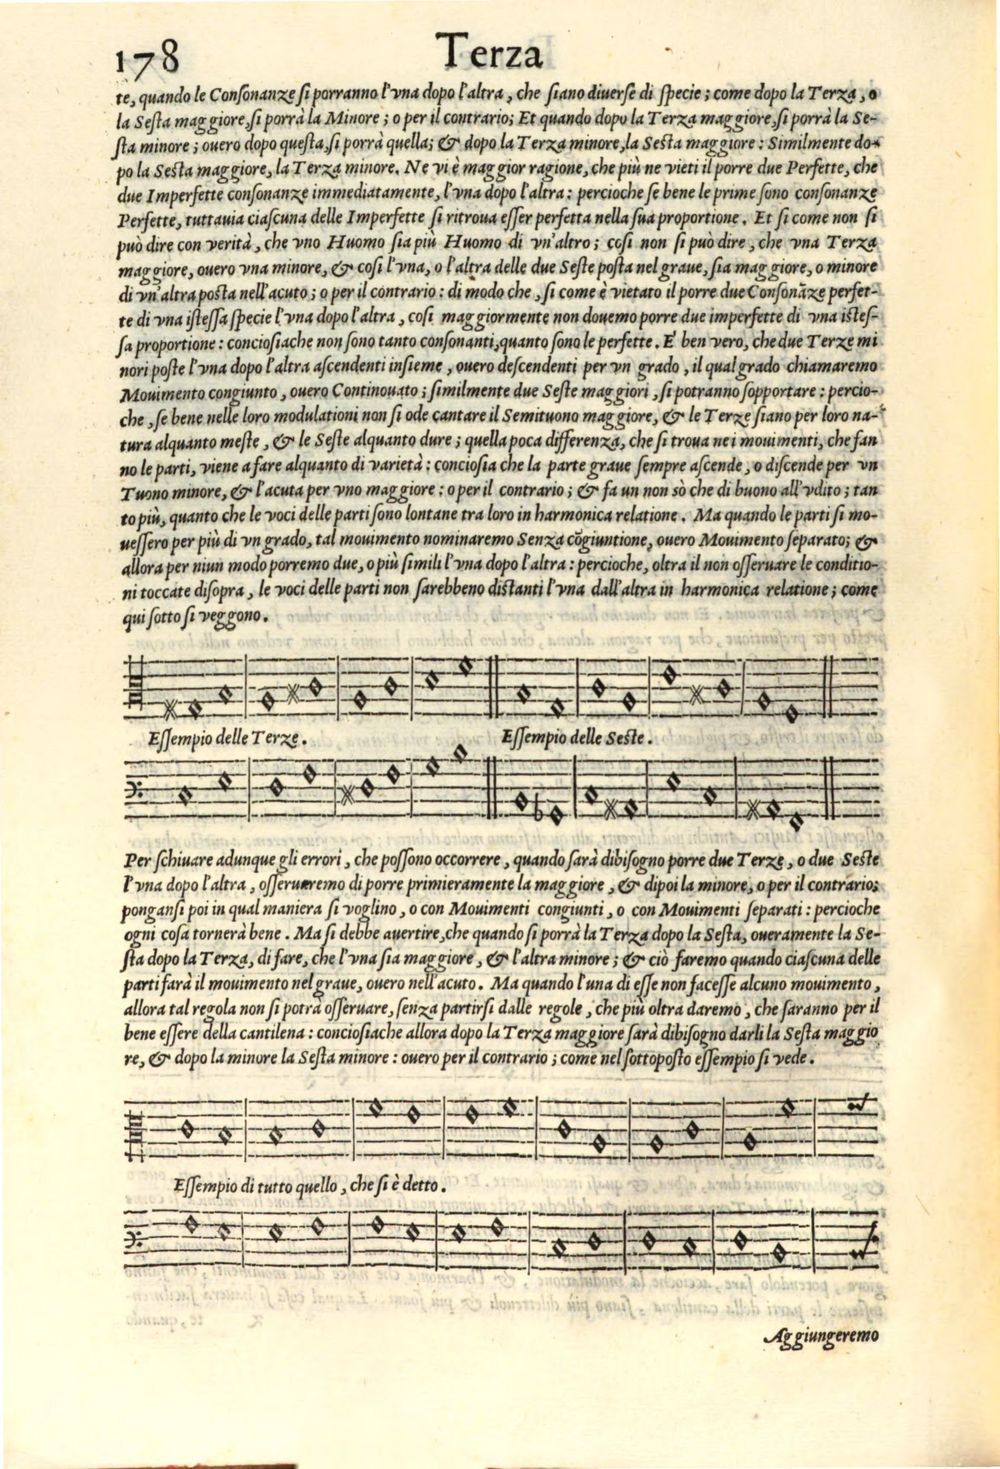 178
Terza
te, quando le Conſonanze ſi porranno l'vna dopo l'altra, che ſiano diuerſe di ſpecie; come dopo la Terza, o
la Seſta maggiore, ſi porrà la Minore; o per il contrario; Et quando dopo la Terza maggiore, ſi porrà la Se-
ſta minore; ouero dopo queſta, ſi porrà quella; & dopo la Terza minore, la Seſta maggiore: Similmente do-
po la Seſta maggiore, la Terza minore. Ne vi è maggior ragione, che più ne vieti il porre due Perfette, che
due Imperfette conſonanze immediatamente, l'vna dopo l'altra: percioche ſe bene le prime ſono conſonanze
Perfette, tuttauia ciaſcuna delle Imperfette ſi ritroua eſſer perfetta nella ſua proportione. Et ſi come non ſi
può dire con verità, che vno Huomo ſia più Huomo di vn'altro; coſi non ſi può dire, che vna Terza
maggiore, ouero vna minore, & coſi l'vna, o l'altra delle due Seſte poſta nel graue, ſia maggiore, o minore
di vn'altra poſta nell'acuto; o per il contrario: di modo che, ſi come è vietato il porre due Conſonãze perfet-
te di vna iſteſſa ſpecie l'vna dopo l'altra, coſi maggiormente non douemo porre due imperfette di vna iſteſ-
ſa proportione: concioſiache non ſono tanto conſonanti, quanto ſono le perfette. E' ben vero, che due Terze mi
nori poſte l'vna dopo l'altra aſcendenti inſieme, ouero deſcendenti per vn grado, il qual grado chiamaremo
Mouimento congiunto, ouero Continouato; ſimilmente due Seſte maggiori, ſi potranno ſopportare: percio-
che, ſe bene nelle loro modulationi non ſi ode cantare il Semituono maggiore, & le Terze ſiano per loro na-
tura alquanto meſte, & le Seſte alquanto dure; quella poca differenza, che ſi troua nei mouimenti, che fan
no le parti, viene a fare alquanto di varietà: concioſia che la parte graue ſempre aſcende, o diſcende per vn
Tuono minore, & l'acuta per vno maggiore: o per il contrario; & fa un non sò che di buono all'vdito; tan
to più, quanto che le voci delle parti ſono lontane tra loro in harmonica relatione. Ma quando le parti ſi mo-
ueſſero per più di vn grado, tal mouimento nominaremo Senza cõgiuntione, ouero Mouimento ſeparato; &
allora per niun modo porremo due, o più ſimili l'vna dopo l'altra: percioche, oltra il non oſſeruare le conditio-
ni toccate diſopra, le voci delle parti non ſarebbeno diſtanti l'vna dall'altra in harmonica relatione; come
qui ſotto ſi veggono.
Eſſempio delle Terze.
Eſſempio delle Seſte.
Per ſchiuare adunque gli errori, che poſſono occorrere, quando ſarà dibiſogno porre due Terze, o due Seſte
l'vna dopo l'altra, oſſeruaremo di porre primieramente la maggiore, & dipoi la minore, o per il contrario;
ponganſi poi in qual maniera ſi voglino, o con Mouimenti congiunti, o con Mouimenti ſeparati: percioche
ogni coſa tornerà bene. Ma ſi debbe auertire, che quando ſi porrà la Terza dopo la Seſta, oueramente la Se-
ſta dopo la Terza, di fare, che l'vna ſia maggiore, & l'altra minore; & ciò faremo quando ciaſcuna delle
parti farà il mouimento nel graue, ouero nell'acuto. Ma quando l'una di eſſe non faceſſe alcuno mouimento,
allora tal regola non ſi potrà oſſeruare, ſenza partirſi dalle regole, che più oltra daremo, che ſaranno per il
bene eſſere della cantilena: concioſiache allora dopo la Terza maggiore ſarà dibiſogno darli la Seſta maggio
re, & dopo la minore la Seſta minore: ouero per il contrario; come nel ſottopoſto eſſempio ſi vede.
Eſſempio di tutto quello, che ſi è detto.
Aggiungeremo